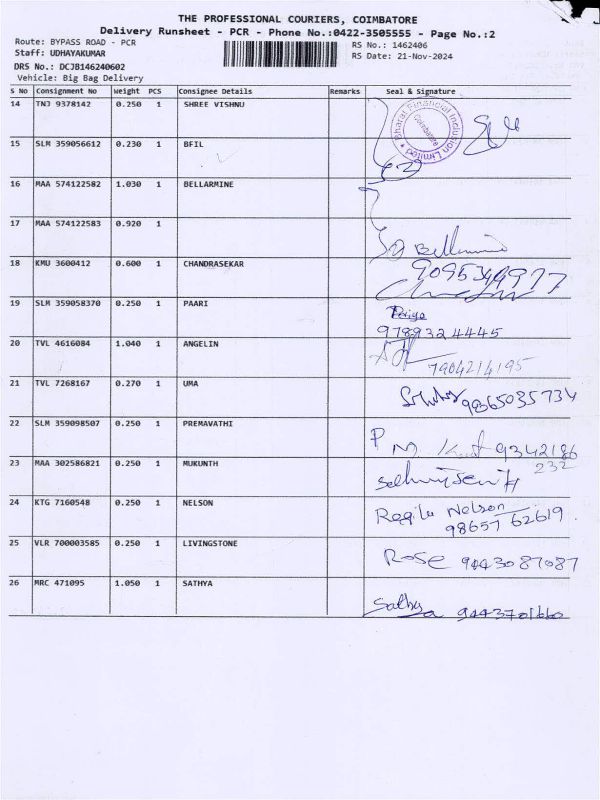 THE PROFESSIONAL COURIERS, COIMBATORE
Delivery Runsheet - PCR - Phone No.:0422-3505555 - Page No.:2
Route: BYPASS ROAD - PCR
RS No.: 1462406
Staff: UDHAYAKUMAR
RS Date: 21-Nov-2024
DRS No.: DCJB146240602
Vehicle: Big Bag Delivery
S No Consignment No Weight PCS Consignee Details Remarks Seal & Signature
14 TNJ 9378142 0.250 1 SHREE VISHNU
Bharat Financial Inclusion Limited
Coimbatore
15 SLM 359056612 0.230 1 BFIL
16 MAA 574122582 1.030 1 BELLARMINE
17 MAA 574122583 0.920 1
18 KMU 3600412 0.600 1 CHANDRASEKAR
9095349977
19 SLM 359058370 0.250 1 PAARI
Priya
9789324445
20 TVL 4616084 1.040 1 ANGELIN
7904214195
21 TVL 7268167 0.270 1 UMA
9865035734
22 SLM 359098507 0.250 1 PREMAVATHI
9342186
232
23 MAA 302586821 0.250 1 MUKUNTH
24 KTG 7160548 0.250 1 NELSON
Regila Nelson
98657 62619
25 VLR 700003585 0.250 1 LIVINGSTONE
ROSE 9443087087
26 MRC 471095 1.050 1 SATHYA
Sathya 9443701660